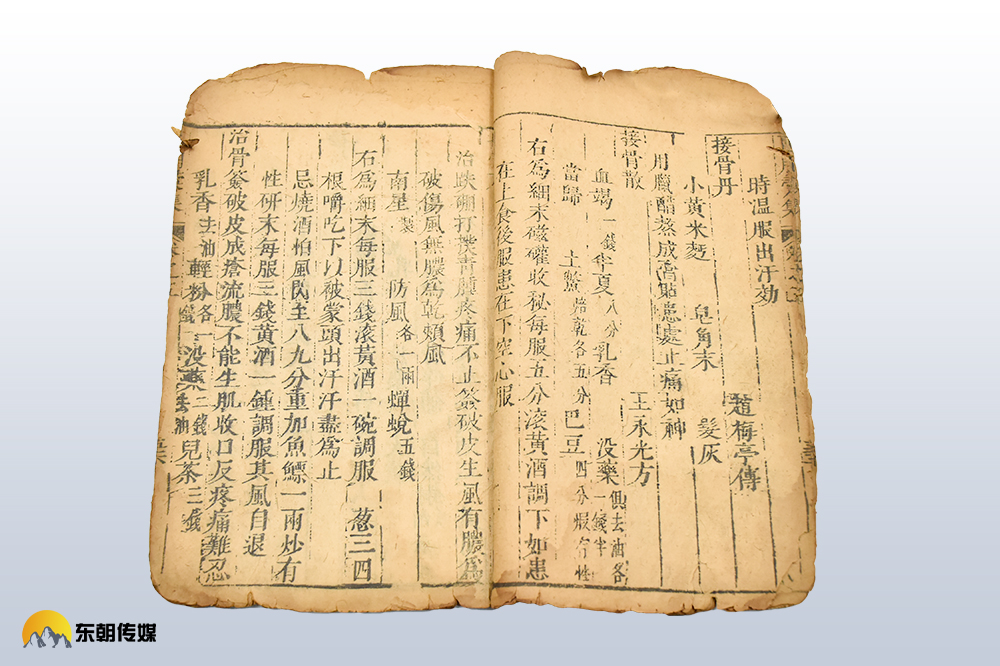 時温服出汗効
接骨丹
趙梅亭傳
小黄米麪
皂角末
髮灰
用釅醋蒸成膏貼患處止痛如神
接骨散
王永光方
血竭一錢半夏八分乳香
没藥一錢半俱去油各
當歸
土鱉焙乾各五分
巴豆四分煅存性
右為細末磁礶收秘每服五分滚黄酒調下如患
在上食後服患在下空心服
治跌磞打撲青腫疼痛不止簽破皮生風有膿為
破傷風無膿為乾頰風
南星製
防風各一兩
蟬蛻五錢
右為細末每服三錢滚黃酒一碗調服
葱三四
根嚼吃下以被蒙頭出汗汗盡為止
忌燒酒怕風閃至八九分重加魚鰾一兩炒有
性研末每服三錢黄酒一鍾調服其風自退
治骨簽破皮成瘡流膿不能生肌收口反疼痛難忍
乳香去油
輕粉各一錢
没藥去油二錢
兒茶三錢
东朝传媒